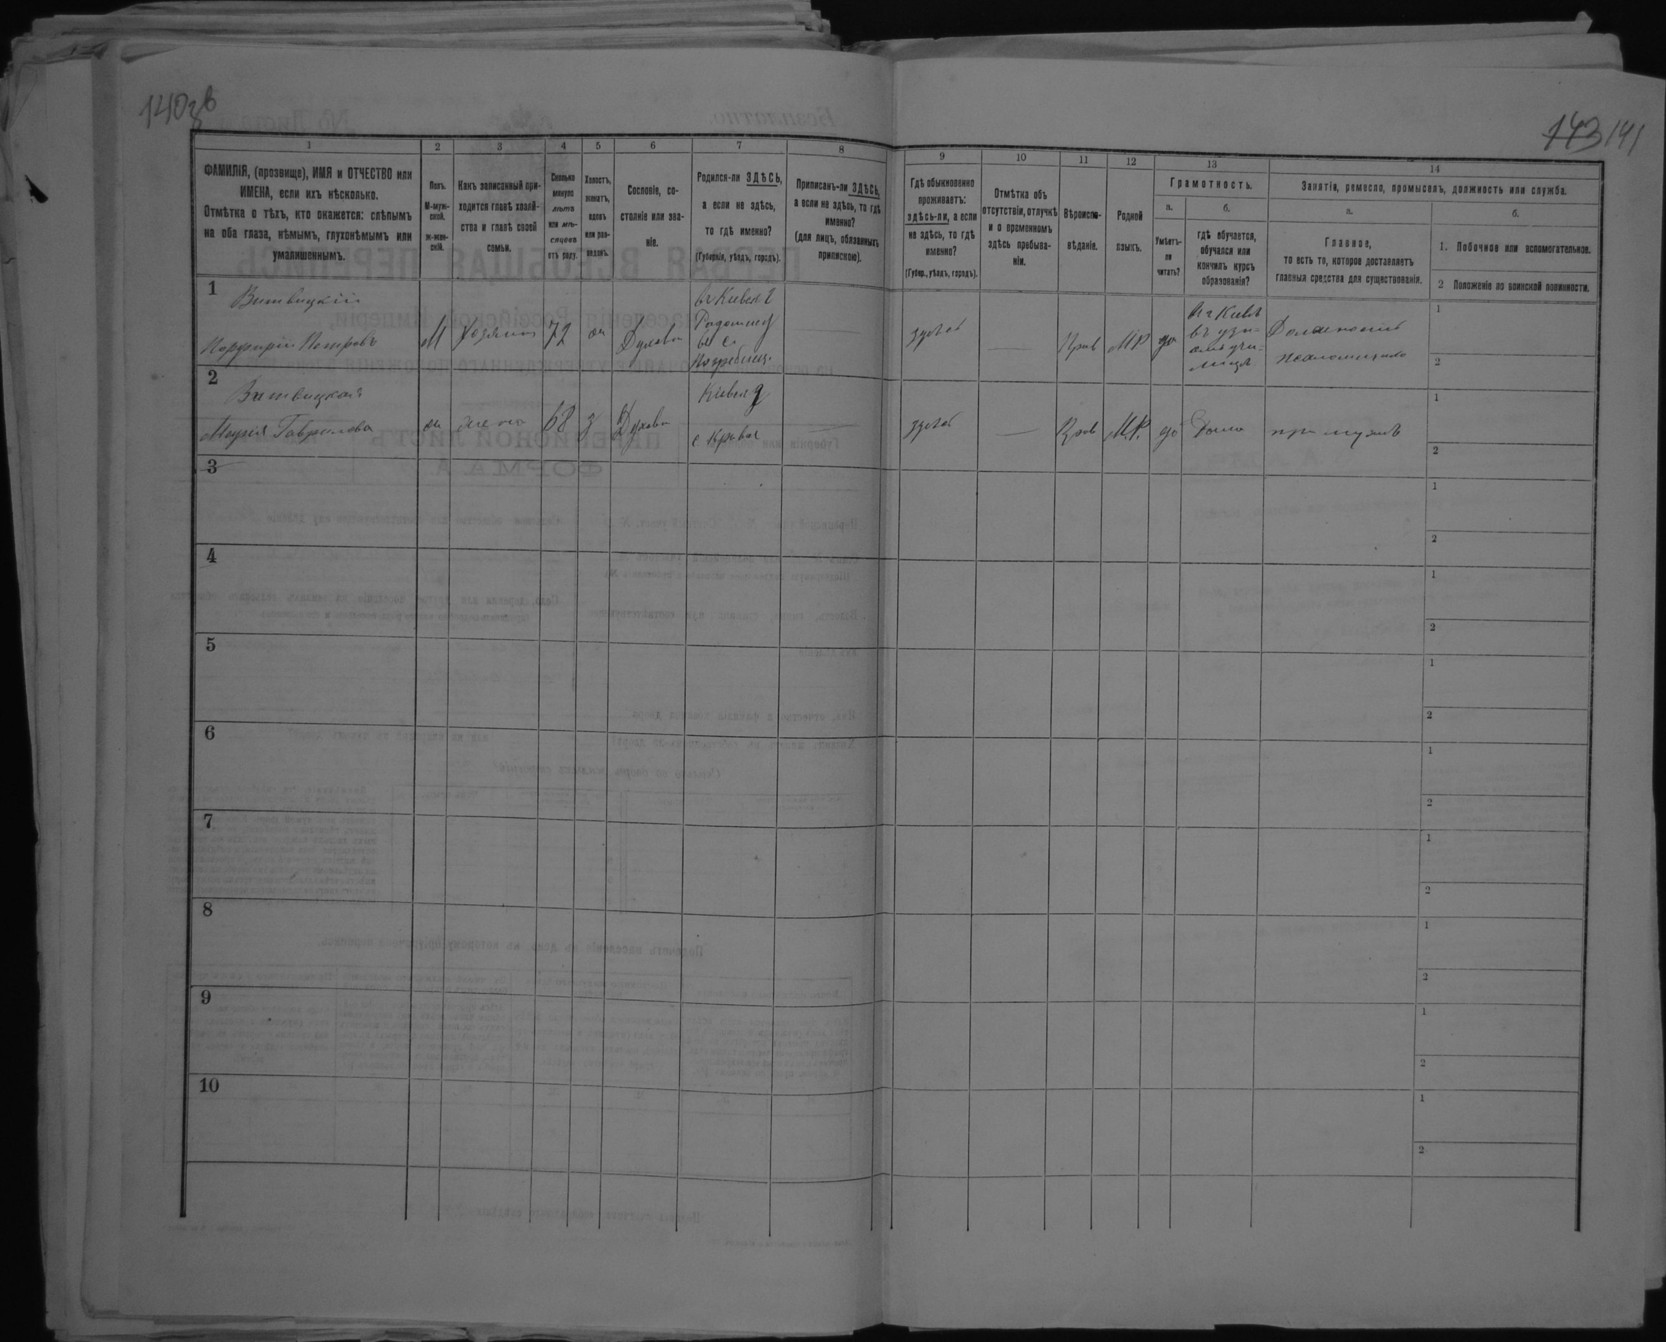 140 зв
143 141
1
2
3
4
5
6
7
8
9
10
11
12
13
14
ФАМИЛІЯ, (прозвище), ИМЯ и ОТЧЕСТВО или
ИМЕНА, если ихъ нѣсколько.
Отмѣтка о тѣхъ, кто окажется: слѣпымъ
на оба глаза, нѣмымъ, глухонѣмымъ или
умалишеннымъ.
Полъ.
М-муж-
ской.
ж-жен-
скій.
Какъ записанный при-
ходится главѣ хозяй-
ства и главѣ своей
семьи.
Сколько
минуло
лѣтъ
или мѣ-
сяцевъ
отъ роду.
Холостъ,
женатъ,
вдовъ
или раз-
веденъ.
Сословіе, со-
стояніе или зва-
ніе.
Родился-ли ЗДѢСЬ,
а если не здѣсь,
то гдѣ именно?
(Губернія, уѣздъ, городъ).
Приписанъ-ли ЗДѢСЬ,
а если не здѣсь, то гдѣ
именно?
(для лицъ, обязанныхъ
припискою).
Гдѣ обыкновенно
проживаетъ:
здѣсь-ли, а если
не здѣсь, то гдѣ
именно?
(Губер., уѣздъ, городъ).
Отмѣтка объ
отсутствіи, отлучкѣ
и о временномъ
здѣсь пребыва-
ніи.
Вѣроиспо-
вѣданіе.
Родной
языкъ.
Грамотность.
а.
Умѣетъ-
ли
читать?
б.
гдѣ обучается,
обучался или
кончилъ курсъ
образованія?
Занятіе, ремесло, промыселъ, должность или служба.
а.
Главное,
то есть то, которое доставляетъ
главныя средства для существованія.
б.
1. Побочное или вспомогательное.
2 Положеніе по воинской повинности.
1
Витвицкій
Порфирій Петровъ
М
хозяинъ
72
ж
Духовн
въ Киевг
въ с.
здѣсь
Прав
МР
да
въ Киевѣ
1
2
2
Витвицкая
Марія Гаврилова
ж
жена
68
з
Духовн
здѣсь
Прав
М.Р.
да
Дома
при мужѣ
1
2
3
1
2
4
1
2
5
1
2
6
1
2
7
1
2
8
1
2
9
1
2
10
1
2